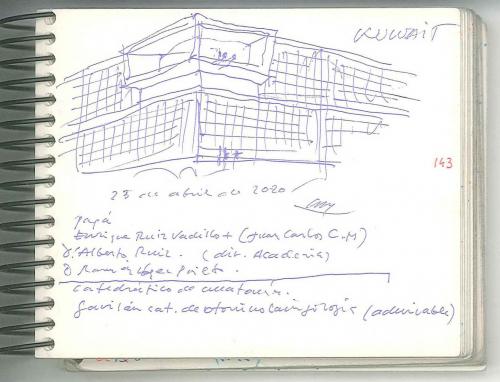 KUWAIT
143
23 de abril de 2020
Papá
Enrique Ruiz Vadillo + (Juan Carlos C.M)
D. Alberto Ruiz. (dir. Academia)
D Ramon Lopez Prieto.
catedrático de anatomía.
Gavilán cat. de otorrinolaringología (admirable)